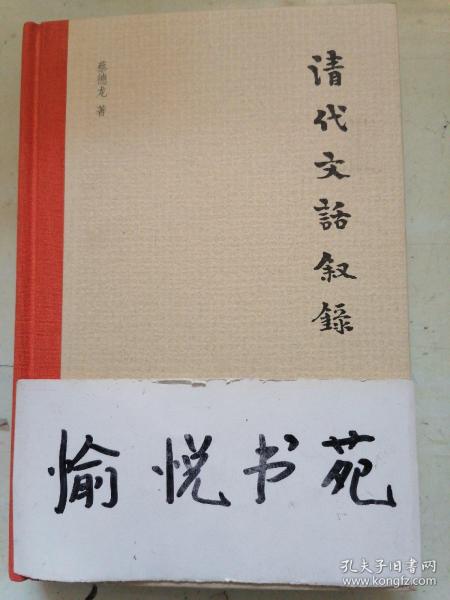 清代文話叙錄
蔡德龙 著
愉悦书苑
孔夫子旧书网
www.kongfz.com